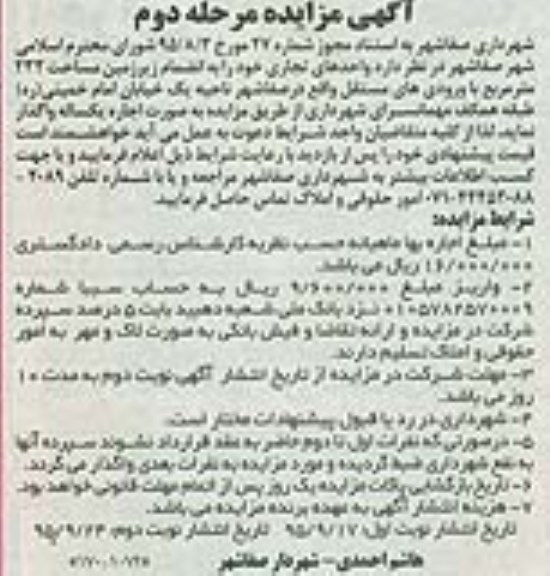 آگهی مزایده مرحله دوم
شهرداری صفاشهر به استناد مجوز شماره ۲۷ مورخ ۹۵/۸/۳ شورای محترم اسلامی
شهر صفاشهر در نظر دارد واحدهای تجاری خود را به انضمام زیرزمین مساحت ۲۳۲
مترمربع با ورودی های مستقل واقع در صفاشهر ناحیه یک خیابان امام خمینی(ره)
طبقه همکف مهمانسرای شهرداری از طریق مزایده به صورت اجاره یکساله واگذار
نماید. لذا از کلیه متقاضیان واجد شرایط دعوت به عمل می آید خواهشمند است
قیمت پیشنهادی خود را پس از بازدید با رعایت شرایط ذیل اعلام فرمایید و یا جهت
کسب اطلاعات بیشتر به شهرداری صفاشهر مراجعه و یا با شماره تلفن
امور حقوقی و املاک تماس حاصل فرمایید.
شرایط مزایده:
۱- مبلغ اجاره بها ماهیانه حسب نظریه کارشناس رسمی دادگستری
۱۶/۰۰۰/۰۰۰ ریال می باشد.
۲- واریز مبلغ ۹/۶۰۰/۰۰۰ ریال به حساب سیبا شماره
۰۱۰۵۷۸۲۵۷۰۰۰۹ نزد بانک ملی شعبه دهبید بابت ۵ درصد سپرده
شرکت در مزایده و ارائه تقاضا و فیش بانکی به صورت لاک و مهر به امور
حقوقی و املاک تسلیم دارند.
۳- مهلت شرکت در مزایده از تاریخ انتشار آگهی نوبت دوم به مدت ۱۰
روز می باشد.
۴- شهرداری در رد یا قبول پیشنهادات مختار است.
۵- در صورتی که نفرات اول تا دوم حاضر به عقد قرارداد نشوند سپرده آنها
به نفع شهرداری ضبط گردیده و مورد مزایده به نفرات بعدی واگذار می گردد.
۶- تاریخ بازگشایی پاکات مزایده یک روز پس از اتمام مهلت قانونی خواهد بود.
۷- هزینه انتشار آگهی به عهده برنده مزایده می باشد.
تاریخ انتشار نوبت اول: ۹۵/۹/۱۷ تاریخ انتشار نوبت دوم: ۹۵/۹/۲۳
هاشم احمدی - شهردار صفاشهر